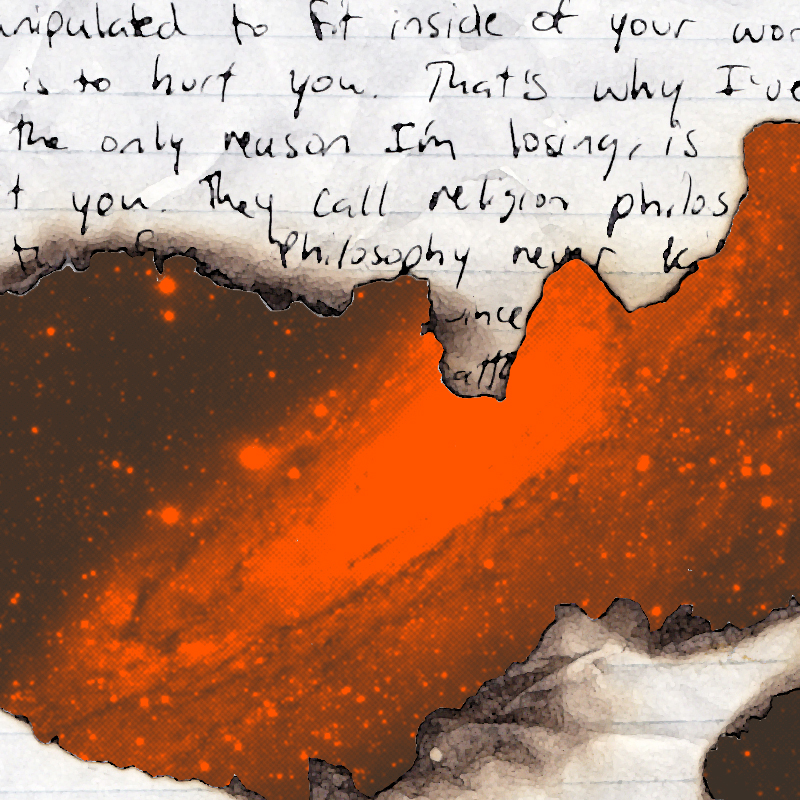 anipulated to fit inside of your wor
is to hurt you. That's why I've
the only reason I'm losing, is
t you. They call religion philos
Philosophy never k
since